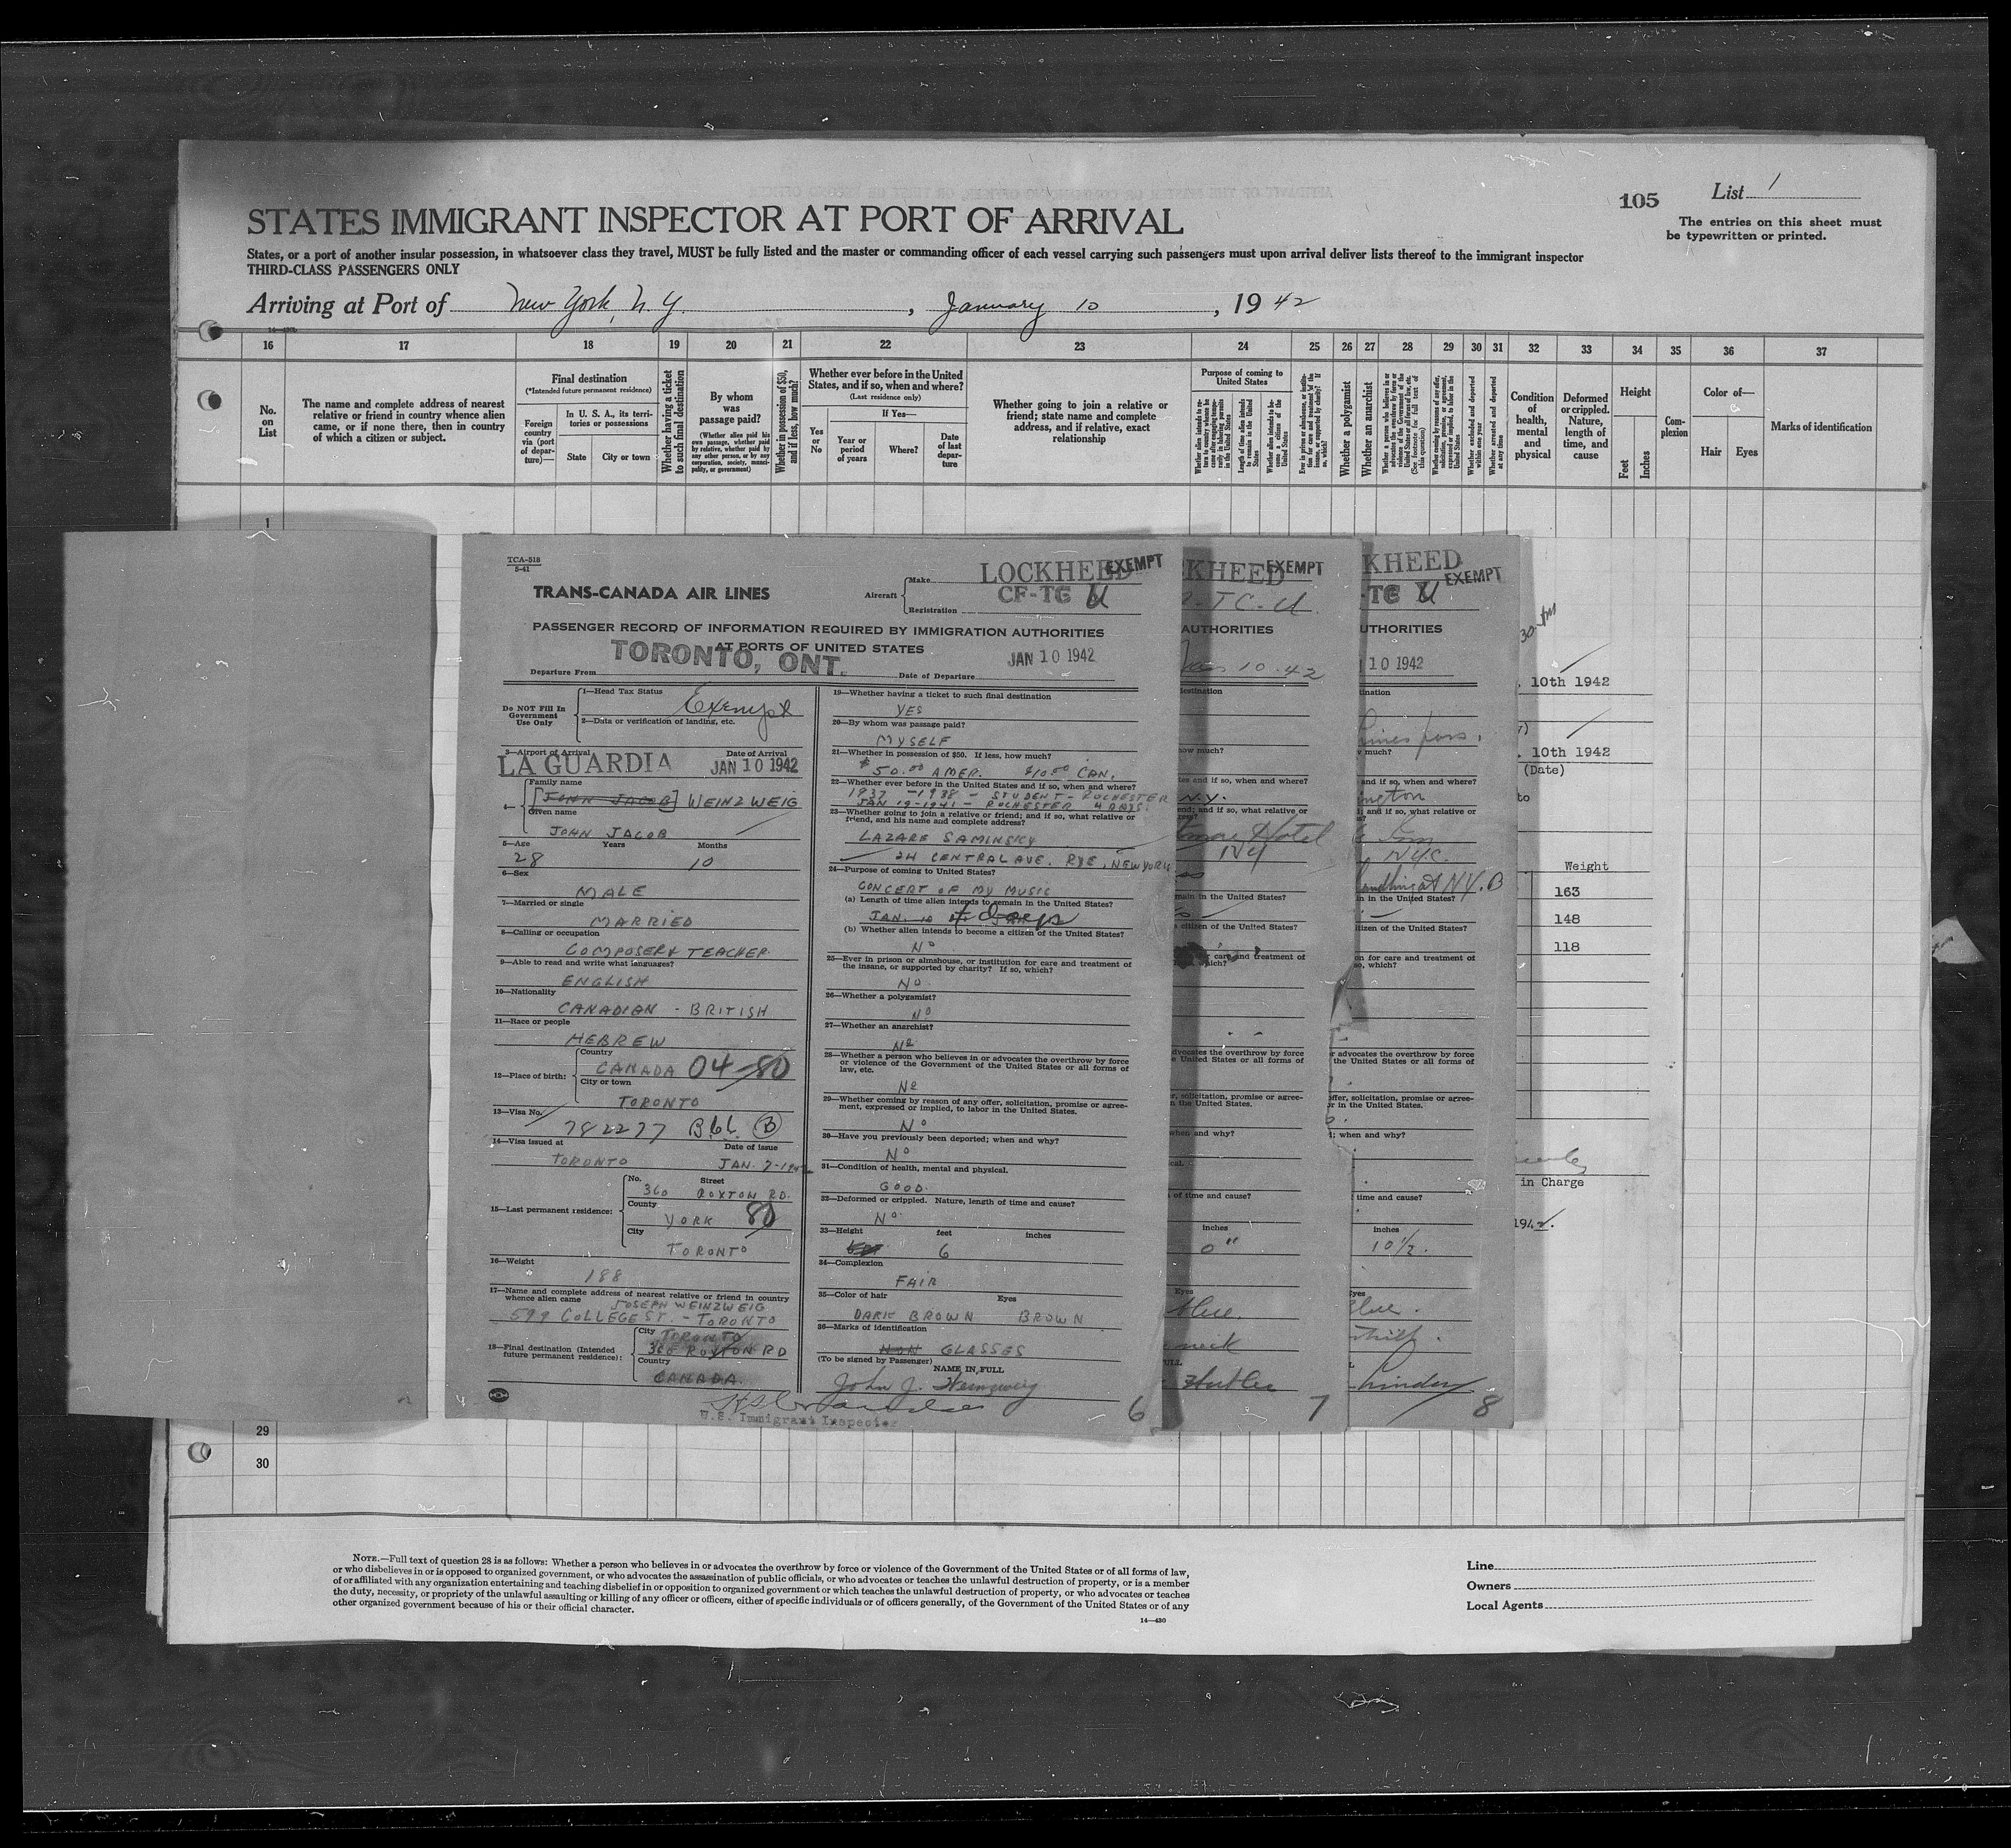 105
List 1
STATES IMMIGRANT INSPECTOR AT PORT OF ARRIVAL
The entries on this sheet must
be typewritten or printed.
States, or a port of another insular possession, in whatsoever class they travel, MUST be fully listed and the master or commanding officer of each vessel carrying such passengers must upon arrival deliver lists thereof to the immigrant inspector
THIRD-CLASS PASSENGERS ONLY
Arriving at Port of New York, N.Y. , January 10 , 1942
16 17 18 19 20 21 22 23 24 25 26 27 28 29 30 31 32 33 34 35 36 37
No. on List
The name and complete address of nearest
relative or friend in country whence alien
came, or if none there, then in country
of which a citizen or subject.
Final destination
(*Intended future permanent residence)
Foreign country via (port of departure)—
In U. S. A., its territories or possessions
State
City or town
Whether having a ticket to such final destination
By whom was passage paid?
(Whether alien paid his own passage, whether paid by relative, whether paid by any other person, or by any corporation, society, municipality, or government)
Whether in possession of $50, and if less, how much?
Whether ever before in the United
States, and if so, when and where?
(Last residence only)
Yes or No
If Yes—
Year or period of years
Where?
Date of last departure
Whether going to join a relative or
friend; state name and complete
address, and if relative, exact
relationship
Purpose of coming to
United States
Length of time alien intends to remain in the United States
Whether alien intends to become a citizen of the United States
Whether a polygamist
Whether an anarchist
Whether excluded and deported within one year
Whether arrested and deported at any time
Condition of health, mental and physical
Deformed or crippled. Nature, length of time, and cause
Height
Feet
Inches
Complexion
Color of—
Hair
Eyes
Marks of identification
1
TCA-518
5-41
TRANS-CANADA AIR LINES
Aircraft
Make LOCKHEED EXEMPT
Registration CF-TC U
PASSENGER RECORD OF INFORMATION REQUIRED BY IMMIGRATION AUTHORITIES
AT PORTS OF UNITED STATES
Departure From TORONTO, ONT.
Date of Departure JAN 10 1942
Do NOT Fill In
Government
Use Only
1—Head Tax Status Exempt
2—Data or verification of landing, etc.
3—Airport of Arrival LA GUARDIA
Date of Arrival JAN 10 1942
4—
Family name
[JOHN JACOB] WEINZWEIG
Given name
JOHN JACOB
5—Age Years Months
28 10
6—Sex
MALE
7—Married or single
MARRIED
8—Calling or occupation
COMPOSER & TEACHER
9—Able to read and write what languages?
ENGLISH
10—Nationality
CANADIAN - BRITISH
11—Race or people
HEBREW
12—Place of birth:
Country
CANADA 04-80
City or town
TORONTO
13—Visa No.
782277 B66 B
14—Visa issued at Date of issue
TORONTO JAN. 7-1942
15—Last permanent residence:
No. Street
360 ROXTON RD.
County
YORK 80
City
TORONTO
16—Weight
188
17—Name and complete address of nearest relative or friend in country
whence alien came JOSEPH WEINZWEIG
599 COLLEGE ST. - TORONTO
18—Final destination (Intended
future permanent residence):
City TORONTO
360 ROXTON RD
Country
CANADA
19—Whether having a ticket to such final destination
YES
20—By whom was passage paid?
MYSELF
21—Whether in possession of $50. If less, how much?
$50.00 AMER. $10.00 CAN.
22—Whether ever before in the United States and if so, when and where?
1937 - 1938 - STUDENT - ROCHESTER
JAN 19-1941 - ROCHESTER 4 DAYS.
23—Whether going to join a relative or friend; and if so, what relative or
friend, and his name and complete address?
LAZARE SAMINSKY
24 CENTRAL AVE. RYE, NEW YORK
24—Purpose of coming to United States?
CONCERT OF MY MUSIC
(a) Length of time alien intends to remain in the United States?
JAN. 10 days
(b) Whether alien intends to become a citizen of the United States?
NO
25—Ever in prison or almshouse, or institution for care and treatment of
the insane, or supported by charity? If so, which?
NO
26—Whether a polygamist?
NO
27—Whether an anarchist?
NO
28—Whether a person who believes in or advocates the overthrow by force
or violence of the Government of the United States or all forms of
law, etc.
NO
29—Whether coming by reason of any offer, solicitation, promise or agree-
ment, expressed or implied, to labor in the United States.
NO
30—Have you previously been deported; when and why?
NO
31—Condition of health, mental and physical.
GOOD.
32—Deformed or crippled. Nature, length of time and cause?
NO
33—Height feet inches
6
34—Complexion
FAIR
35—Color of hair Eyes
DARK BROWN BROWN
36—Marks of identification
NON GLASSES
(To be signed by Passenger)
NAME IN FULL
John J. Weinzweig
U.S. Immigrant Inspector
6
KHEED EXEMPT
AUTHORITIES
10-42
destination
how much?
and if so, when and where?
N.Y.
end; and if so, what relative or
Hotel
NY
main in the United States?
citizen of the United States?
care and treatment of
which?
dvocates the overthrow by force
United States or all forms of
r, solicitation, promise or agree-
n the United States.
when and why?
of time and cause?
inches
0"
Eyes
blue.
neck
7
KHEED
EXEMPT
-TC U
UTHORITIES
10 1942
tination
much?
and if so, when and where?
ington
; and if so, what relative or
NYC.
in in the United States?
itizen of the United States?
on for care and treatment of
so, which?
r advocates the overthrow by force
the United States or all forms of
offer, solicitation, promise or agree-
or in the United States.
; when and why?
time and cause?
inches
10 1/2.
Eyes
Blue.
8
10th 1942
10th 1942
(Date)
to
Weight
163
148
118
in Charge
1942.
29
30
NOTE.—Full text of question 28 is as follows: Whether a person who believes in or advocates the overthrow by force or violence of the Government of the United States or of all forms of law,
or who disbelieves in or is opposed to organized government, or who advocates the assassination of public officials, or who advocates or teaches the unlawful destruction of property, or is a member
of or affiliated with any organization entertaining and teaching disbelief in or opposition to organized government or which teaches the unlawful destruction of property, or who advocates or teaches
the duty, necessity, or propriety of the unlawful assaulting or killing of any officer or officers, either of specific individuals or of officers generally, of the Government of the United States or of any
other organized government because of his or their official character.
14—430
Line
Owners
Local Agents